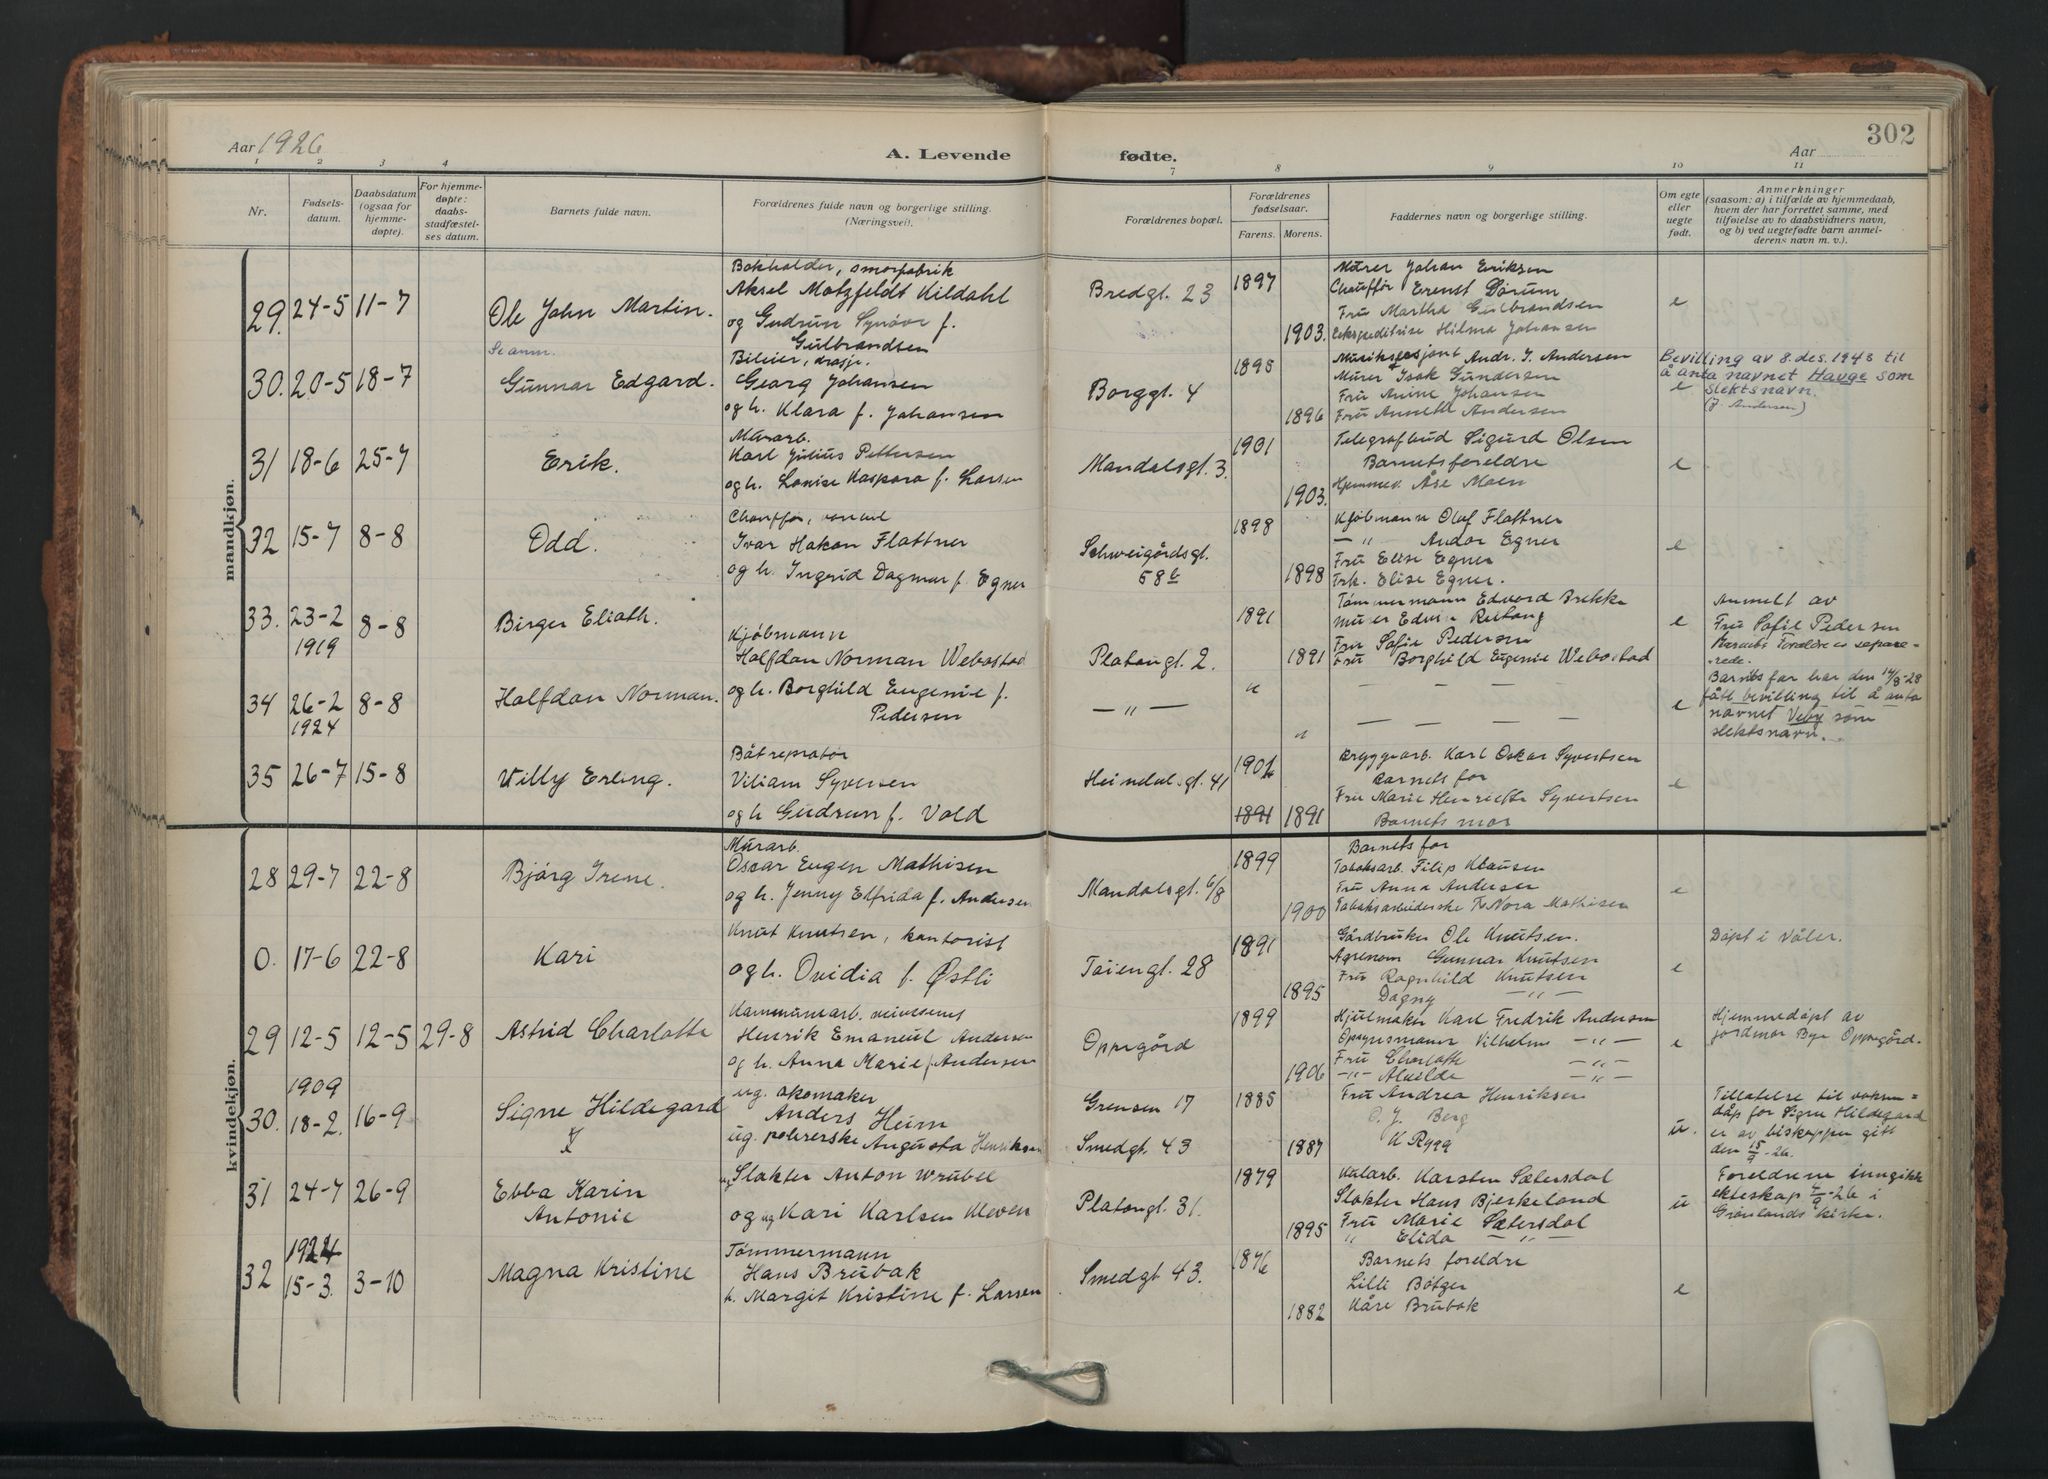 Aar 1926
A. Levende fødte.
302
Aar
1 2 3 4 7 8 9 10 11
Nr.
Fødsels-
datum.
Daabsdatum
(ogsaa for
hjemme-
døpte).
For hjemme-
døpte:
daabs-
stadfæstel-
ses datum.
Barnets fulde navn.
Forældrenes fulde navn og borgerlige stilling.
(Næringsvei).
Forældrenes bopæl.
Forældrenes
fødselsaar.
Farens. Morens.
Faddernes navn og borgerlige stilling.
Om egte
eller
uegte
født.
Anmerkninger
(saasom: a) i tilfælde av hjemmedaab,
hvem der har forrettet samme, med
tilføielse av to daabsvidners navn,
og b) ved uegtefødte barn anmel-
derens navn m. v.).
mandkjøn.
29. 24-5 11-7
Ole John Martin.
Bokholder, smørfabrik
Aksel Motzfeldt Kildahl
og Gudrun Synöve f.
Gulbrandsen
Bredgt. 23
1897
1903.
Murer Johan Eriksen
Chauffør Ernst Dørum
Fru Martha Gulbrandsen
Ekspeditrise Hilma Johansen
e
Se anm.
30. 20-5 18-7
Gunnar Edgard.
Bileier, drosje.
Georg Johansen
og h. Klara f. Johansen
Borggt. 4
1895
1896
Andr. J. Andersen
Murer Isak Gundersen
Fru Anine Johansen
Fru Annette Andersen
e
Bevilling av 8. des. 1943 til
å anta navnet Hauge som
slektsnavn.
(J. Andersen)
31 18-6 25-7
Erik.
Murarb.
Karl Julius Pettersen
og h. Lovise Kaspara f. Larsen
Mandalsgt. 3.
1901
1903.
Telegrafbud Sigurd Olsen
Barnets foreldre
Hjemmev. Åse Moen
e
32 15-7 8-8
Odd.
Chauffør,
Ivar Hakon Flattner
og h. Ingrid Dagmar f. Egner
Schweigårdsgt.
58 b
1898
1898
Kjøbmann Olaf Flattner
— " — Andor Egner
Fru Elise Egner
Frk. Elise Egner.
e
33. 23-2 8-8
1919
Birger Eliath.
Kjøbmann
Halfdan Norman Webostad
og h. Borghild Eugenie f.
Pedersen
Platousgt. 2.
1891
1891
Tømmermann Edvard Brekke
Murer Edvin
Fru Sofie Pedersen
Fru Borghild Eugenie Webostad
e
Anmelt av
Fru Sofie Pedersen
Barnets Forældre er separe-
rede.
34 26-2 8-8
1924
Halfdan Norman.
— " —
"
"
— — — — —
— — — — —
e
Barnets far har den 14/8-28
fått bevilling til å anta
navnet Veby som
slektsnavn.
35 26-7 15-8
Willy Erling.
Båtreparatør
Viliam Syversen
og h Gudrun f. Vold
Heimdalsgt. 41
1901
1891 1891
Bryggearb. Karl Oskar Syvertsen
Barnets far
Fru Marie Henriette Syvertsen
Barnets mor
e
kvindekjøn.
28 29-7 22-8
Bjørg Irene.
Murarb.
Oscar Eugen Mathisen
og h. Jenny Elfrida f. Andersen
Mandalsgt. 6/8
1899
1900
Barnets far
Tobaksarb. Filip Klausen
Fru Anna Andersen
Tobaksarbeiderske Nora Mathisen
e
0. 17-6 22-8
Kari
Knut Knutsen, kontorist
og h. Ovidia f. Østli
Tøiengt. 28
1891
1895
Gårdbruker Ole Knutsen.
Agronom Gunnar Knutsen
Fru Ragnhild Knutsen
Dagny — " —
e
Døpt i Våler.
29 12-5 12-5 29-8
Astrid Charlotte
Kommunearb. veivesenet
Henrik Emanuel Andersen
og h. Anna Marie f Andersen
Oppegård
1899
1906
Hjulmaker Karl Fredrik Andersen
Opsynsmann Vilhelm — " —
Fru Charlotte — " —
— " — Alvilde — " —
e
Hjemmedøpt av
jordmor Bye Oppegård.
1909
30. 18-2. 16-9
Signe Hildegard
X
ug. skomaker
Anders Heim
ug. polererske Augusta Henriksen
Grensen 17
Smedgt. 43
1885
1887
Fru Andrea Henriksen
O. J. Berg
K Rygg
u.
Tillatelse til voksen=
dåp for Signe Hildegard
er av biskoppen gitt
den 15/9-26.
31 24-7 26-9
Ebba Karin
Antonie
ug Slakter Anton Wrubel
og ug Kari Karlsen Kleven
Platousgt. 31.
1879
1895
Kularb. Karsten Sætersdal
Slakter Hans Bjerkeland
Fru Marie Sætersdal
" Elida — " —
u
Foreldrene inngikk
ekteskap 4/9-26 i
Grønlands kirke.
1924
32 15-3. 3-10
Magna Kristine
Tømmermann
Hans Brubak
h. Margit Kristine f. Larsen
Smedgt. 43.
1876
1882
Barnets foreldre
Lilli Bøtger
Kåre Brubak
e